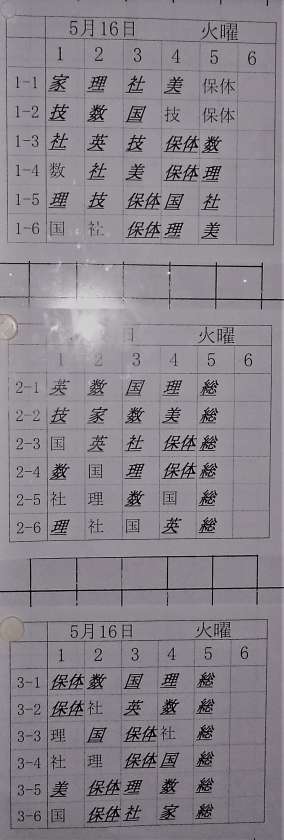 5月16日 火曜
1 2 3 4 5 6
1-1 家 理 社 美 保体
1-2 技 数 国 技 保体
1-3 社 英 技 保体 数
1-4 数 社 美 保体 理
1-5 理 技 保体 国 社
1-6 国 社 保体 理 美
日 火曜
1 2 3 4 5 6
2-1 英 数 国 理 総
2-2 技 家 数 美 総
2-3 国 英 社 保体 総
2-4 数 国 理 保体 総
2-5 社 理 数 国 総
2-6 理 社 国 英 総
5月16日 火曜
1 2 3 4 5 6
3-1 保体 数 国 理 総
3-2 保体 社 英 数 総
3-3 理 国 保体 社 総
3-4 社 理 保体 国 総
3-5 美 保体 理 数 総
3-6 国 保体 社 家 総